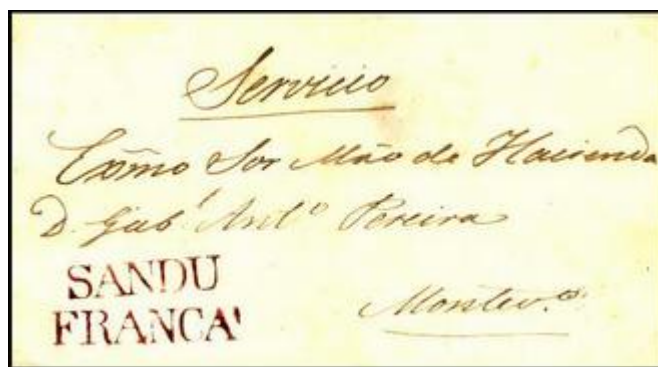 Servicio
Exmo Sor Mño de Hacienda
D. Gabl Anto Pereira
SANDU
FRANCA
Montevo.